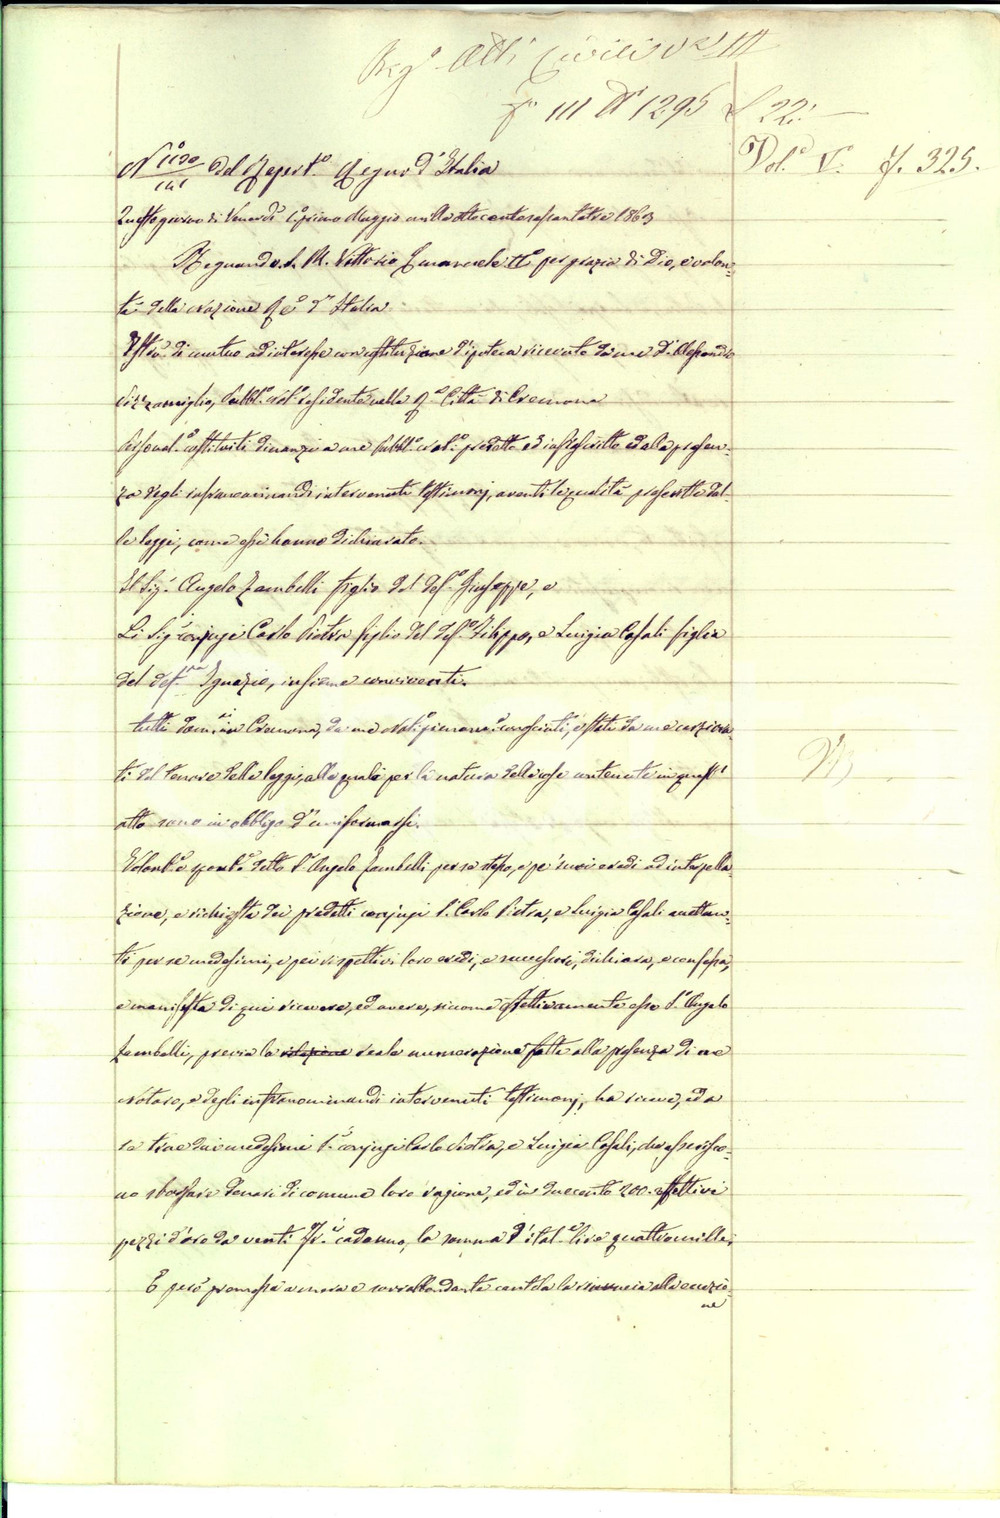 Reg.º Atti Civili Vol III
fº III Nº 1295 £ 22:
Vol.º V.º f. 325.
Nº del Repert.º Regno d'Italia
Questo giorno di Venerdì 1º primo Maggio mille ottocentosessantatre 1863
Regnando S. M. Vittorio Emanuele IIº per grazia di Dio, e volon-
tà della Nazione Re d'Italia
di mutuo ad interesse con costituzione d'ipoteca ricevuto da me Dr Alessandro
Pubbl.º Not.º residente nella Rª Città di Cremona
Personal.e costituiti dinanzi a me Pubbl.º Not.º predetto ed infrascritto ed alla presen-
za degli infranominandi intervenuti testimonj, aventi le qualità prescritte dal-
le leggi, come essi hanno dichiarato.
Il Sig.r Angelo Zambelli figlio del def.º Giuseppe, e
Li Sig.ri conjugi Carlo Pietra figlio del def.º Filippo, e Luigia Casali figlia
del def.º Ignazio, insieme conviventi.
tutti dom.ti in Cremona, da me Not.º conosciuti, e stati da me cerziora-
ti del tenore delle leggi, alle quali per la natura delle cose contenute in quest'
atto sono in obbligo d'uniformarsi.
Volont.e e spont.e detto S.r Angelo Zambelli per se stesso, e pe' suoi eredi ad interpella-
zione, e richiesta dei predetti conjugi S.ri Carlo Pietra, e Luigia Casali accettan-
ti per se medesimi, e pei rispettivi loro eredi, e successori, dichiara, e confessa,
e manifesta di qui ricevere, ed avere, siccome effettivamente esso S.r Angelo
Zambelli, previa la relazione reale numerazione fatta alla presenza di me
Notaro, e degli infranominandi intervenuti testimonj, ha riceve, ed a
se trae dai medesimi S.ri conjugi Carlo Pietra, e Luigia Casali, che asserisco-
no sborsare denari di comune loro ragione, ed in duecento 200. effettivi
pezzi d'oro da venti Fr.i cadauno, la somma d'ital.e lire quattromille;
E però promessa a mera e sovrabbondante cautela la rinuncia alla eccezio-
ne